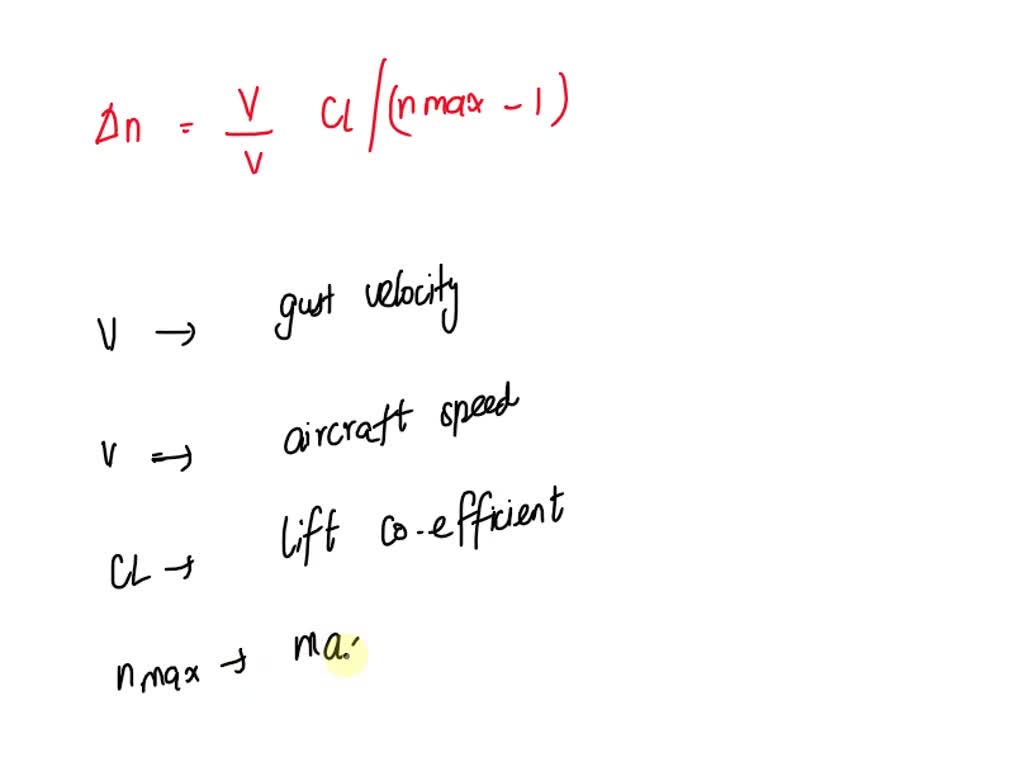 Δn = V/v CL/(n max - 1)
V → gust velocity
v → aircraft speed
CL → lift co-efficient
nmax → ma